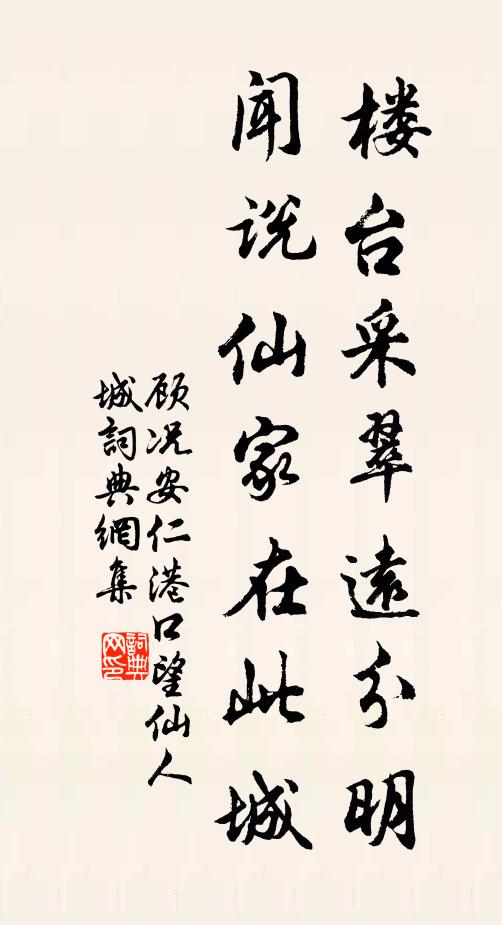 楼台采翠远分明
闻说仙家在此城
顾况安仁港口望仙人
城词典網集
詞典网印